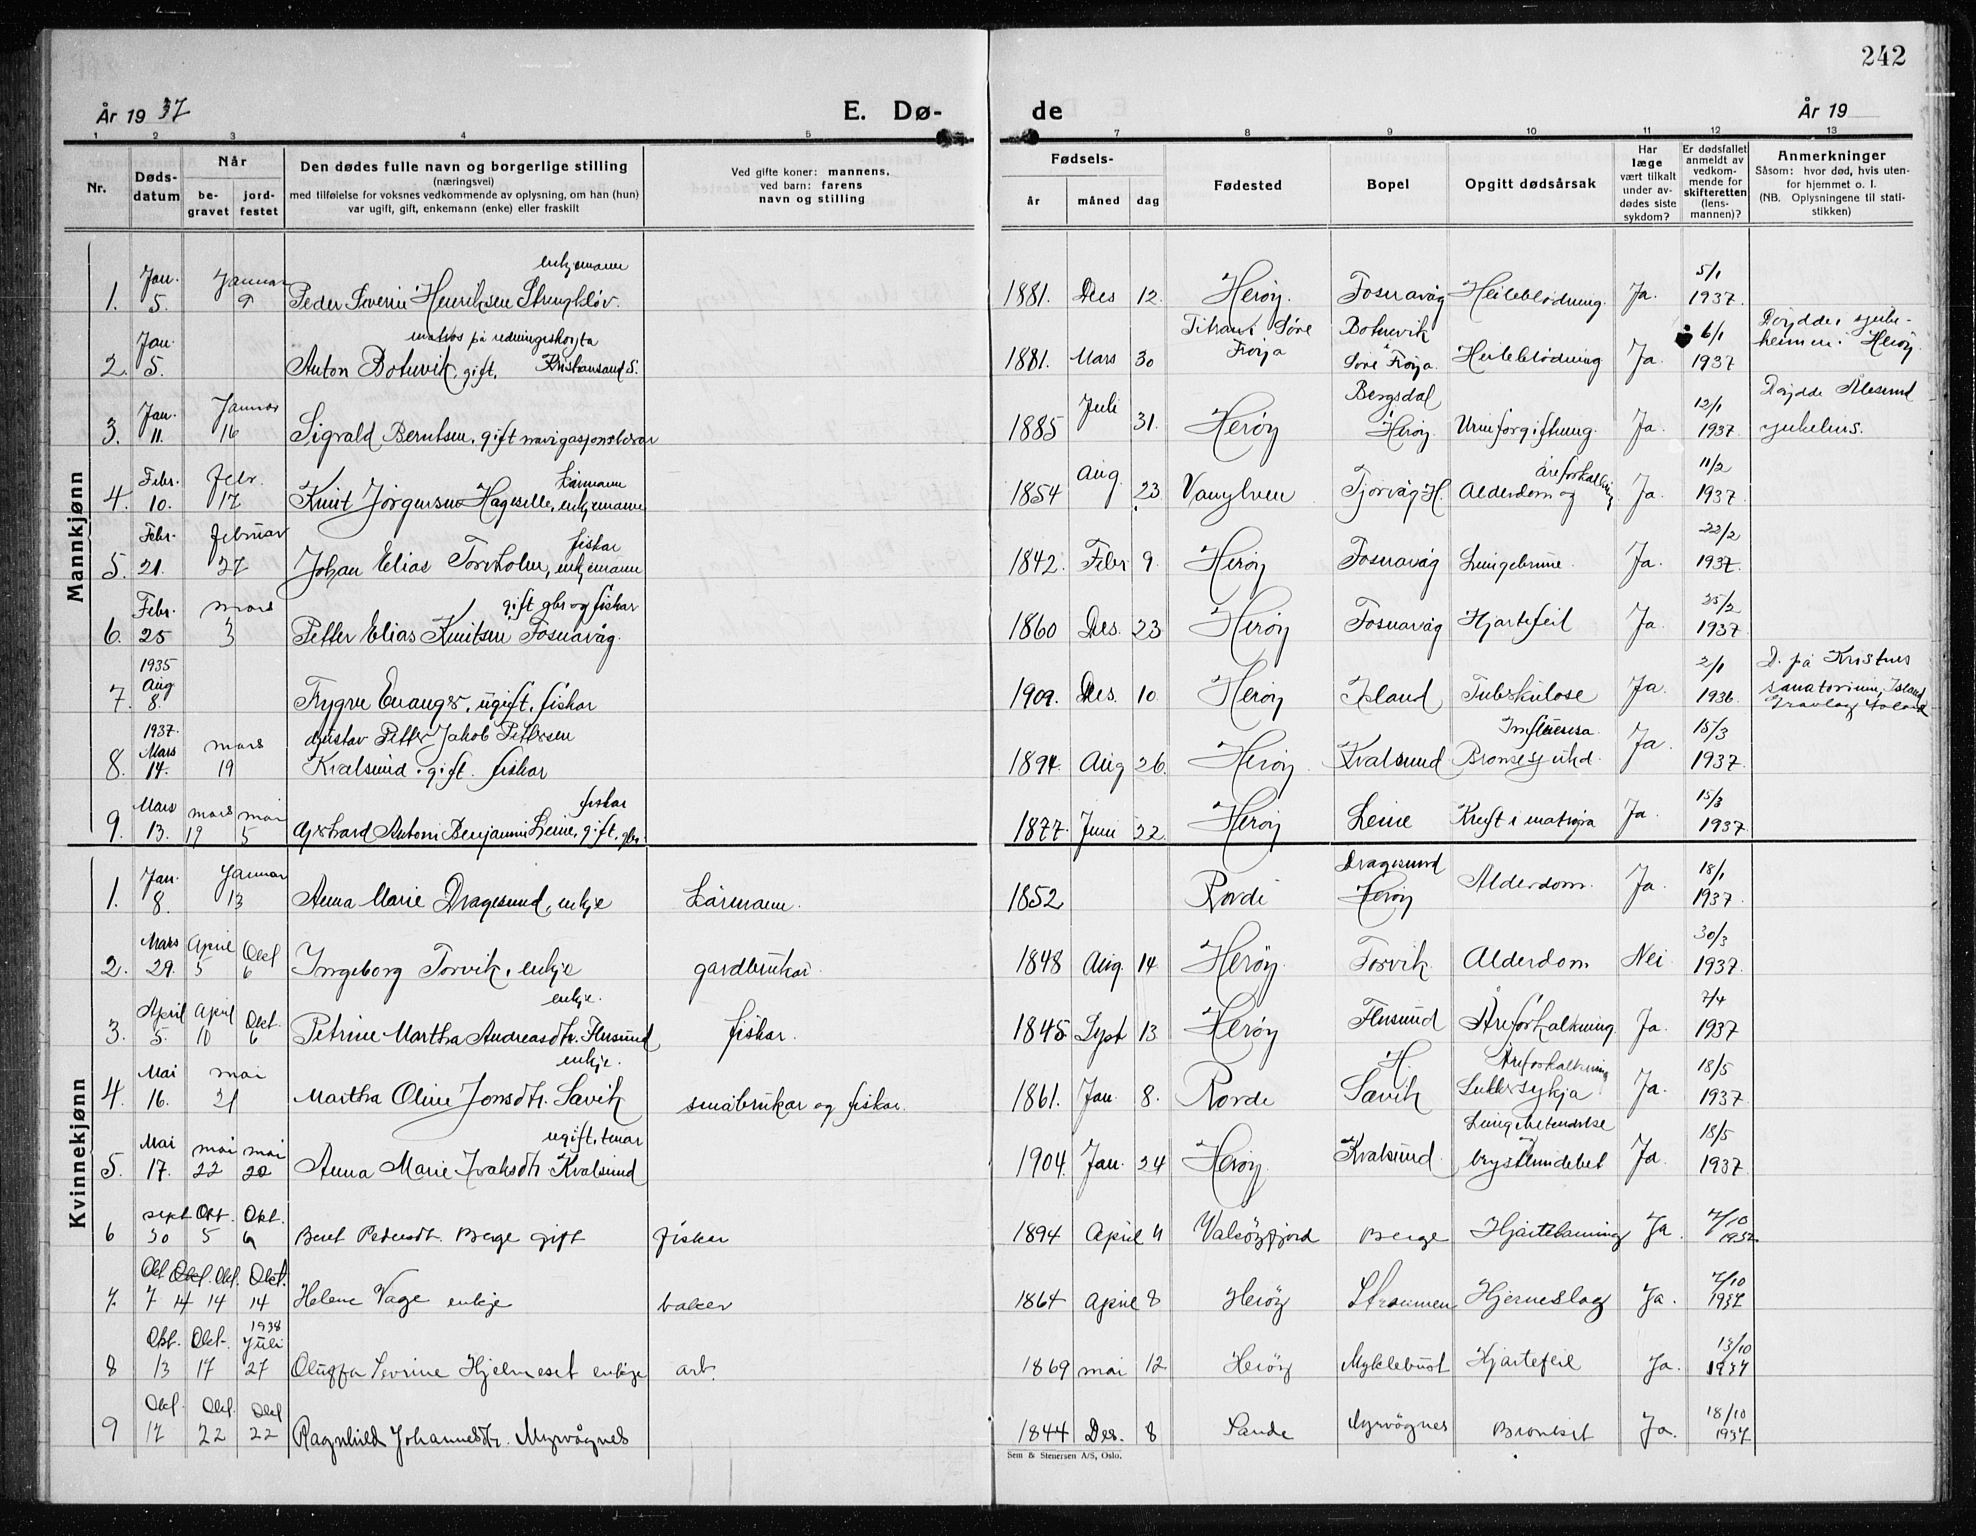 242
År 1937 E. Dø- de År 19
1 2 3 4 5 7 8 9 10 11 12 13
Nr.
Døds-
datum
Når
be-
gravet
jord-
festet
Den dødes fulle navn og borgerlige stilling
(næringsvei)
med tilføielse for voksnes vedkommende av oplysning, om han (hun)
var ugift, gift, enkemann (enke) eller fraskilt
Ved gifte koner: mannens,
ved barn: farens
navn og stilling
Fødsels-
år måned dag
Fødested
Bopel
Opgitt dødsårsak
Har
læge
vært tilkalt
under av-
dødes siste
sykdom?
Er dødsfallet
anmeldt av
vedkom-
mende for
skifteretten
(lens-
mannen)?
Anmerkninger
Såsom: hvor død, hvis uten-
for hjemmet o. l.
(NB. Oplysningene til stati-
stikken)
Mannkjønn
1. Jan. 5. Januar 9 Peder Severin Henriksen enkjemann 1881. Des 12. Herøy. Fosnavåg Heileblødning. Ja. 5/1 1937.
2. Jan. 5. Anton Botnvik, gift. matros på redningsskøyta Kristiansand S. 1881. Mars 30 Titran Søre Frøya Botnvik Søre Frøya Heileblødning Ja. 6/1 1937 Døydde i sjuke-
heimen i Herøy.
3. Jan. 11. Januar 16 Sigvald Berntsen, gift navigasjonslærar 1885 Juli 31. Herøy Bergsdal Herøy. Urinforgiftning. Ja. 12/1 1937. Døydde Ålesund
sjukehus.
4. Febr. 10. Febr. 17 Knut Jørgensen Hageselle, enkjemann kårmann 1854 Aug. 23. Vanylven Tjørvåg H. Alderdom og åreforkalkning Ja. 11/2 1937.
5. Febr. 21. Februar 27 Johan Elias Torvholm, enkjemann fiskar 1842. Febr 9. Herøy Fosnavåg Lungebrune. Ja. 22/2 1937.
6. Febr. 25 mars 3 Petter Elias Knutsen Fosnavåg. gift gbr og fiskar 1860 Des. 23 Herøy Fosnavåg Hjartefeil Ja. 25/2 1937.
7. 1935 Aug 8. Trygve Evanger, ugift, fiskar 1909. Des. 10 Herøy Island Tuberkulose Ja. 2/1 1936. D. på Kristnes
sanatorium, Island
8. 1937. Mars 14. mars 19 Gustav Petter Jakob Pettersen
Kvalsund. gift. fiskar 1894. Aug 26. Herøy. Kvalsund Influensa. Ja. 15/3 1937.
9. Mars 13. mars 19 mai 5 Gerhard Antoni Benjamin Leine, gift, gbr. fiskar 1877. Juni 22. Herøy Leine Kreft i Ja. 15/3 1937.
Kvinnekjønn
1. Jan. 8. Januar 13 Anna Marie Dragesund, enkje kårmann. 1852 Rovde Dragesund Herøy Alderdom. Ja. 18/1 1937.
2. Mars 29. April 5 Okt 6 Ingeborg Torvik, enkje gardbrukar. 1848 Aug. 14 Herøy. Torvik. Alderdom Nei 30/3 1937.
3. April 5. April 10 Okt. 6 Petrine Martha Andreasdtr. Flusund enkje. fiskar. 1845 Sept 13 Herøy Flusund Åreforkalkning. Ja. 7/4 1937
4. Mai 16. mai 21 Martha Oline Jonsdtr. Søvik enkje. småbrukar og fiskar. 1861. Jan 8. Rovde H. Søvik Åreforkalkning Sukkersykja Ja. 18/5 1937.
5. Mai 17. mai 22 mai 22 Anna Marie Isaksdtr. Kvalsund ugift, tenar 1904. Jan. 24 Herøy Kvalsund. Lungebetendelse Ja. 18/5 1937.
6 sept 30 Okt. 5 Okt. 6 Beret Pedersdt. Berge gift fisker 1894 April 4 Valsøyfjord Berge Hjartelamning Ja. 2/10 1937.
7. Okt 7 Okt. 14 Okt. 14 Okt. 14 Helene Vage enkje baker 1864 April 8 Herøy Straumen Hjerneslag Ja. 7/10 1937
8 Okt. 13 Okt. 17 1938 Juli 27 Oluffa Sevrine Hjelmeset enkje arb. 1869 mai 12 Herøy Myklebust Hjartefeil Ja. 13/10 1937
9 Okt. 17 Okt. 22 Okt 22 Ragnhild Johannesdtr. Myrvågnes 1844 Des. 8 Sande Myrvågnes Bronkit Ja. 18/10 1937
Sem & Stenersen A/S, Oslo.